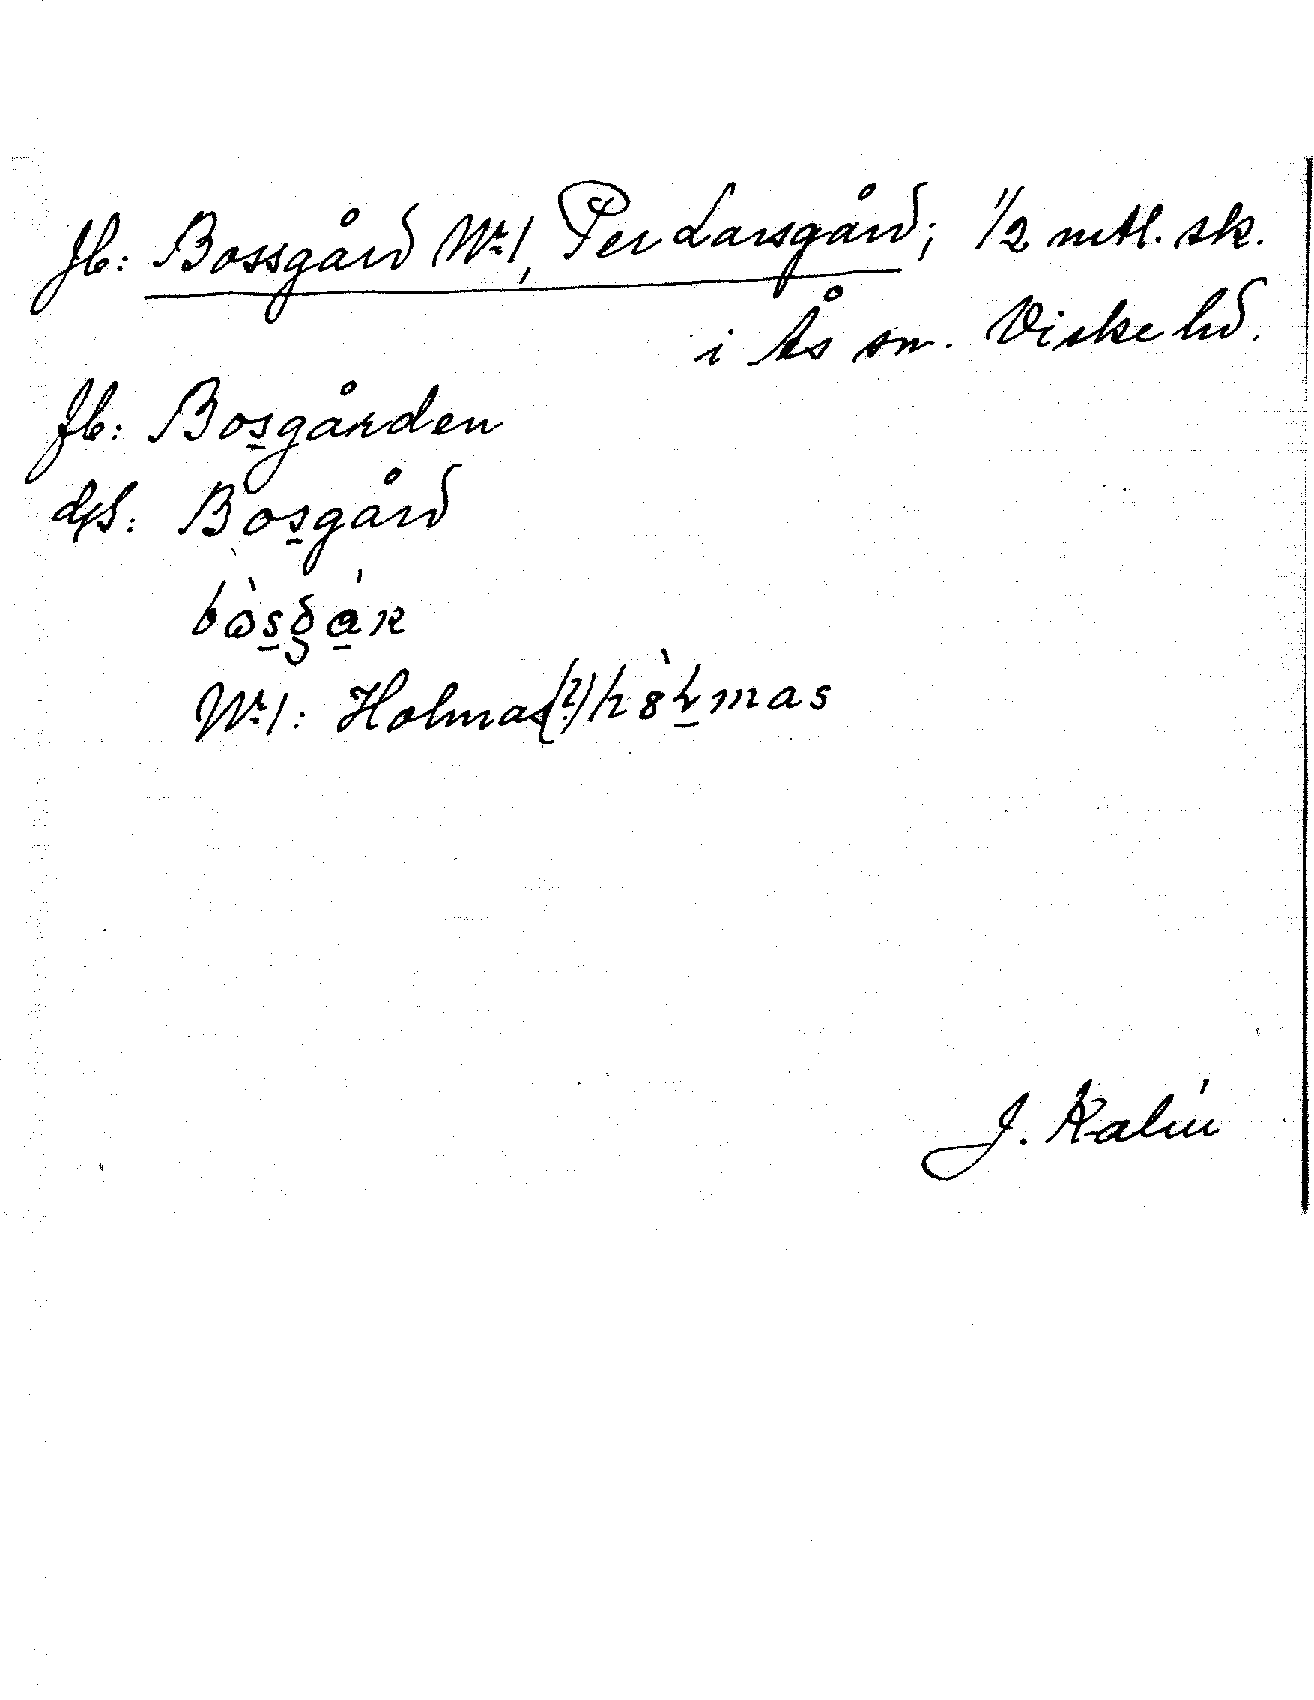 Jb: Bossgård Nr 1, Per Larsgård; 1/2 mtl. sk.
i Ås sn. Viske hd.
fb: Bosgården
dfs: Bosgård
Nr 1: Holmas (?)
J. Kalén